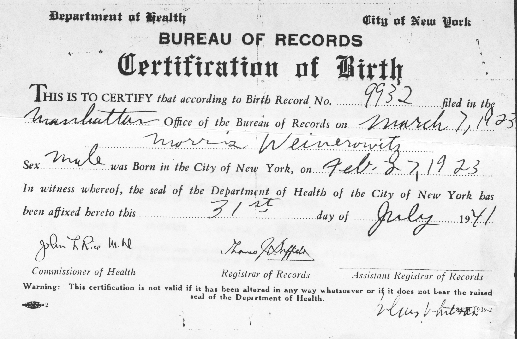 Department of Health City of New York
BUREAU OF RECORDS
Certification of Birth
THIS IS TO CERTIFY that according to Birth Record No. 9932 filed in the
Manhattan Office of the Bureau of Records on March 7, 1923
Morris Weinerowitz
Sex male was Born in the City of New York, on Feb. 27, 1923
In witness whereof, the seal of the Department of Health of the City of New York has
been affixed hereto this 31st day of July 1941
John L Rice M.D.
Commissioner of Health Registrar of Records Assistant Registrar of Records
Warning: This certification is not valid if it has been altered in any way whatsoever or if it does not bear the raised
seal of the Department of Health.